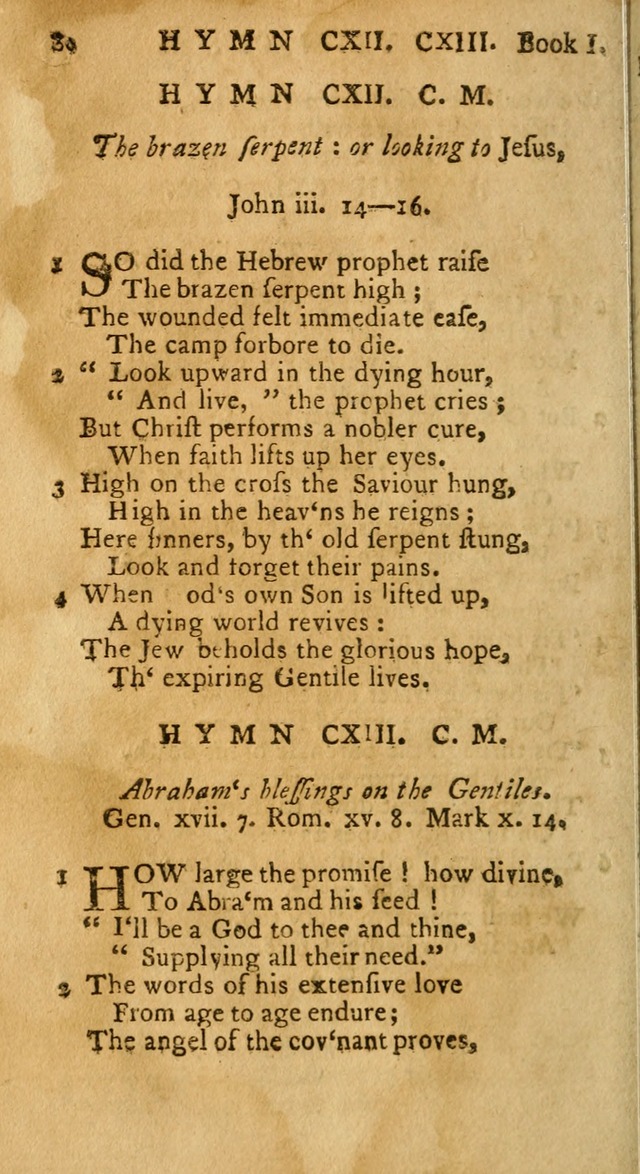 80 HYMN CXII. CXIII. Book I.
HYMN CXII. C. M.
The brazen ſerpent : or looking to Jeſus,
John iii. 14—16.
1 SO did the Hebrew prophet raiſe
The brazen ſerpent high ;
The wounded felt immediate eaſe,
The camp forbore to die.
2 “ Look upward in the dying hour,
“ And live, ” the prophet cries ;
But Chriſt performs a nobler cure,
When faith lifts up her eyes.
3 High on the croſs the Saviour hung,
High in the heav‘ns he reigns ;
Here ſinners, by th‘ old ſerpent ſtung,
Look and forget their pains.
4 When od‘s own Son is lifted up,
A dying world revives :
The Jew beholds the glorious hope,
Th‘ expiring Gentile lives.
HYMN CXIII. C. M.
Abraham‘s bleſſings on the Gentiles.
Gen. xvii. 7. Rom. xv. 8. Mark x. 14.
1 HOW large the promiſe ! how divine,
To Abra‘m and his ſeed !
“ I‘ll be a God to thee and thine,
“ Supplying all their need.”
2 The words of his extenſive love
From age to age endure ;
The angel of the cov‘nant proves,